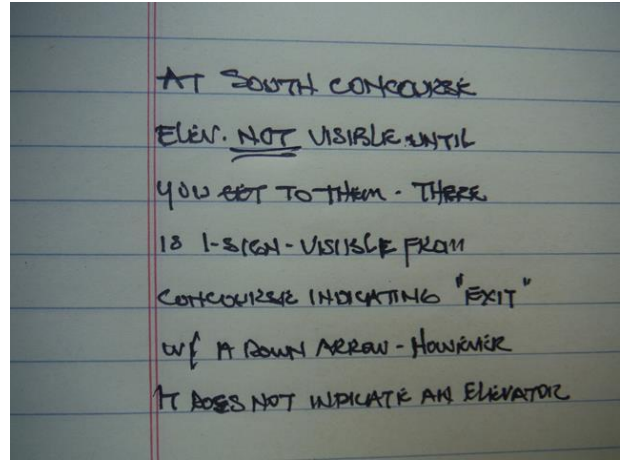 AT SOUTH CONCOURSE
ELEV. NOT VISIBLE UNTIL
YOU GET TO THEM - THERE
IS 1-SIGN-VISIBLE FROM
CONCOURSE INDICATING "EXIT"
W/ A DOWN ARROW - HOWEVER
IT DOES NOT INDICATE AN ELEVATOR